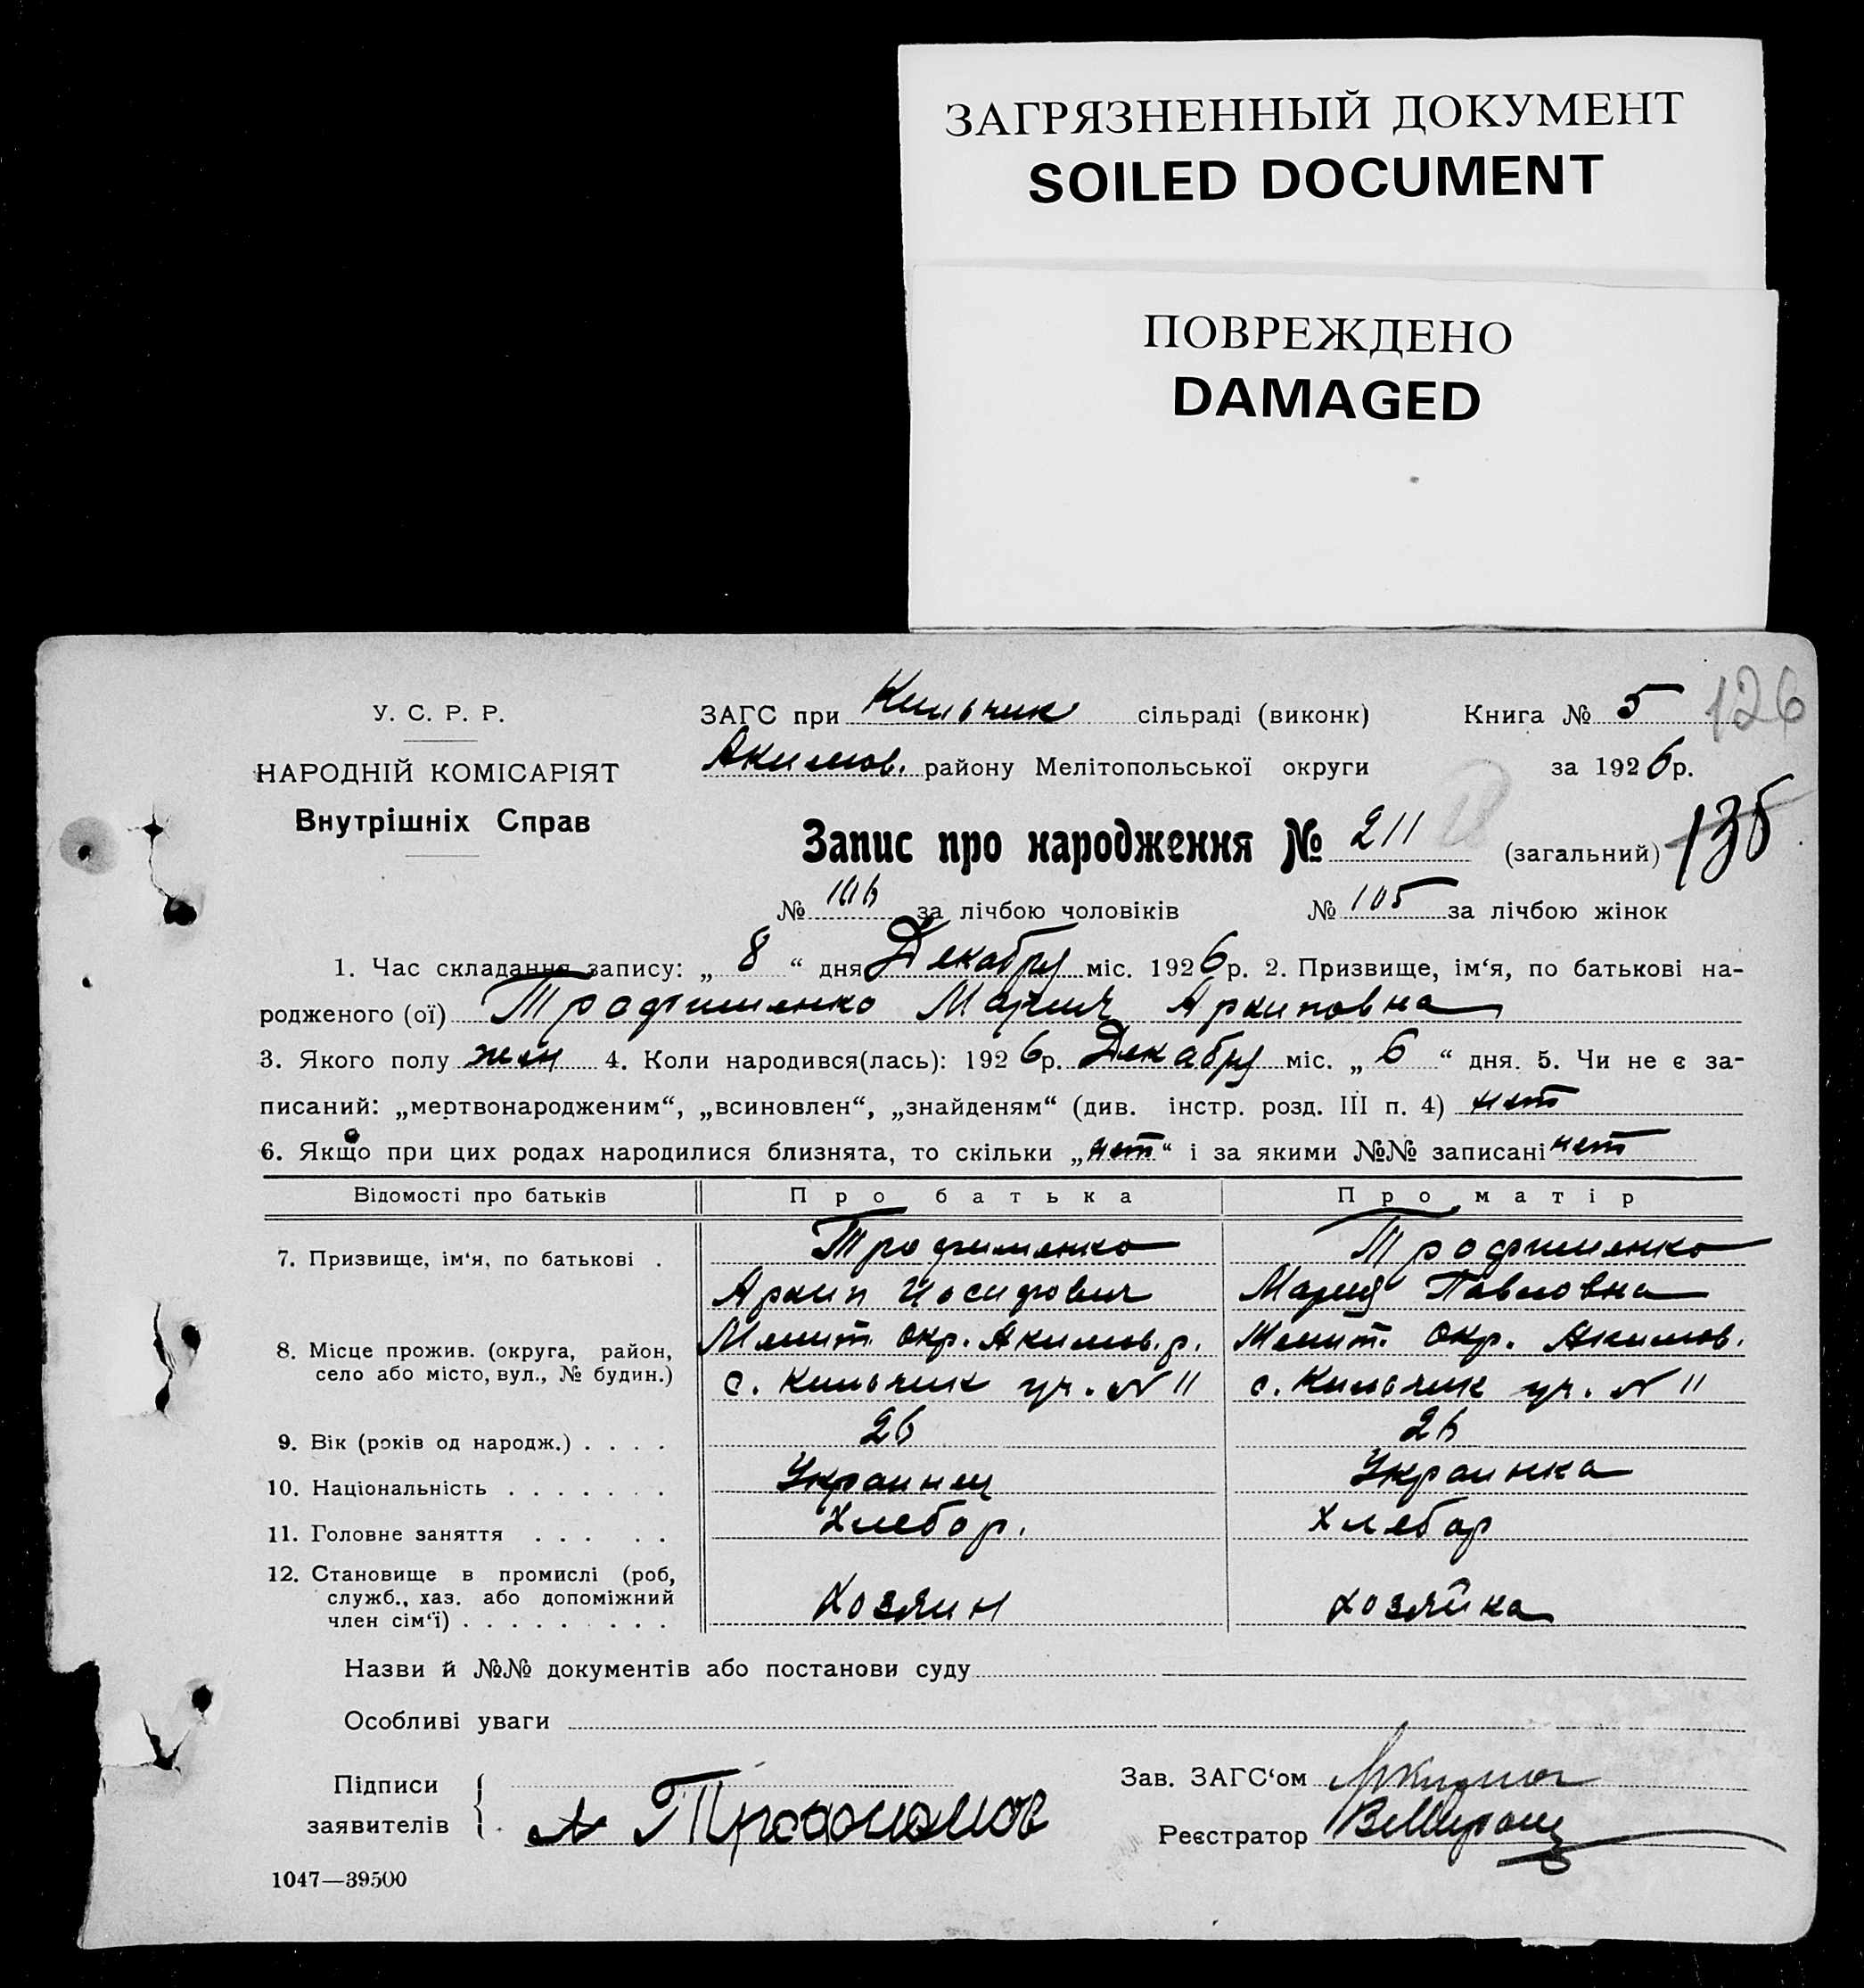 ЗАГРЯЗНЕННЫЙ ДОКУМЕНТ
SOILED DOCUMENT
ПОВРЕЖДЕНО
DAMAGED
126
У. С. Р. Р.
НАРОДНІЙ КОМІСАРІЯТ
Внутрішніх Справ
ЗАГС при Кильчик сільраді (виконк) Книга № 5
Акимов. району Мелітопольської округи за 1926р.
Запис про народження № 211 (загальний) 135
№ 106 за лічбою чоловіків № 105 за лічбою жінок
1. Час складання запису: „ 8 “ дня Декабру міс. 1926р. 2. Призвище, ім‘я, по батькові на-
родженого (ої) Трофименко Мария Архиповна
3. Якого полу жен 4. Коли народився(лась): 1926р. Декабру міс. „ 6 “ дня. 5. Чи не є за-
писаний: „мертвонародженим“, „всиновлен“, „знайденям“ (див. інстр. розд. III п. 4) нет
6. Якщо при цих родах народилися близнята, то скільки „нет“ і за якими №№ записані нет
Відомості про батьків Про батька Про матір
7. Призвище, ім‘я, по батькові . Трофименко Трофименко
Архип Иосифович Мария Павловна
8. Місце прожив. (округа, район, Мелит. окр. Акимов. р. Мелит. окр. Акимов.
село або місто, вул., № будин.) с. Кильчик уч. N 11 с. Кильчик уч. N 11
9. Вік (років од народж.) . . . . 26 26
10. Національність . . . . . . . Украинец Украинка
11. Головне заняття . . . . . Хлебор. Хлебор
12. Становище в промислі (роб,
служб., хаз. або допоміжний Хозяин Хозяйка
член сім‘ї) . . . . . . . . .
Назви й №№ документів або постанови суду
Особливі уваги
Підписи Зав. ЗАГС‘ом
заявителів Реєстратор
1047—39500